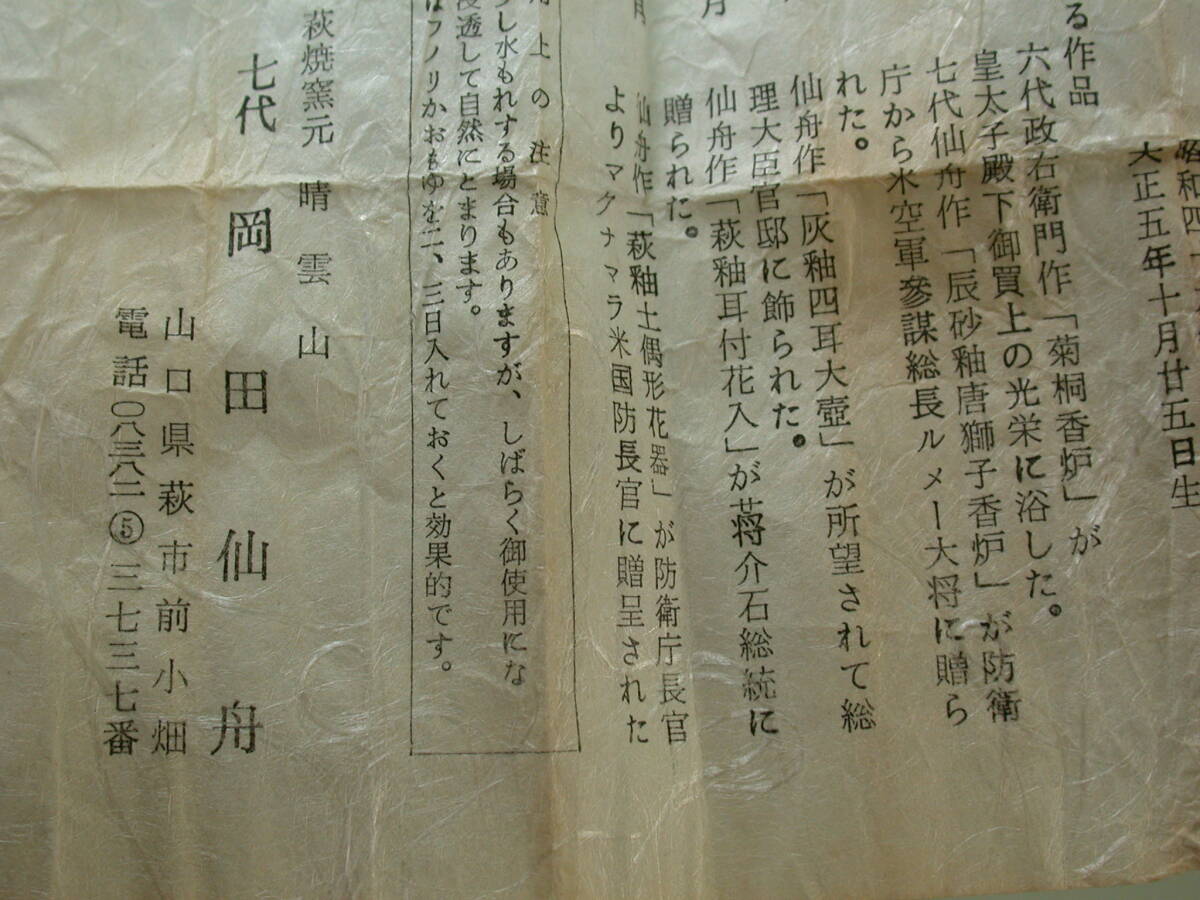 昭和四
大正五年十月廿五日生
る作品
六代政右衛門作「菊桐香炉」が
皇太子殿下御買上の光栄に浴した。
七代仙舟作「辰砂釉唐獅子香炉」が防衛
庁から米空軍参謀総長ルメー大将に贈ら
れた。
仙舟作「灰釉四耳大壺」が所望されて総
理大臣官邸に飾られた。
月
仙舟作「萩釉耳付花入」が蒋介石総統に
贈られた。
月
仙舟作「萩釉土偶形花器」が防衛庁長官
よりマクナマラ米国防長官に贈呈された
用上の注意
し水もれする場合もありますが、しばらく御使用にな
浸透して自然にとまります。
はフノリかおもゆを二、三日入れておくと効果的です。
萩焼窯元 晴雲山
七代 岡田仙舟
山口県萩市前小畑
電話〇八三八二⑤三七三七番